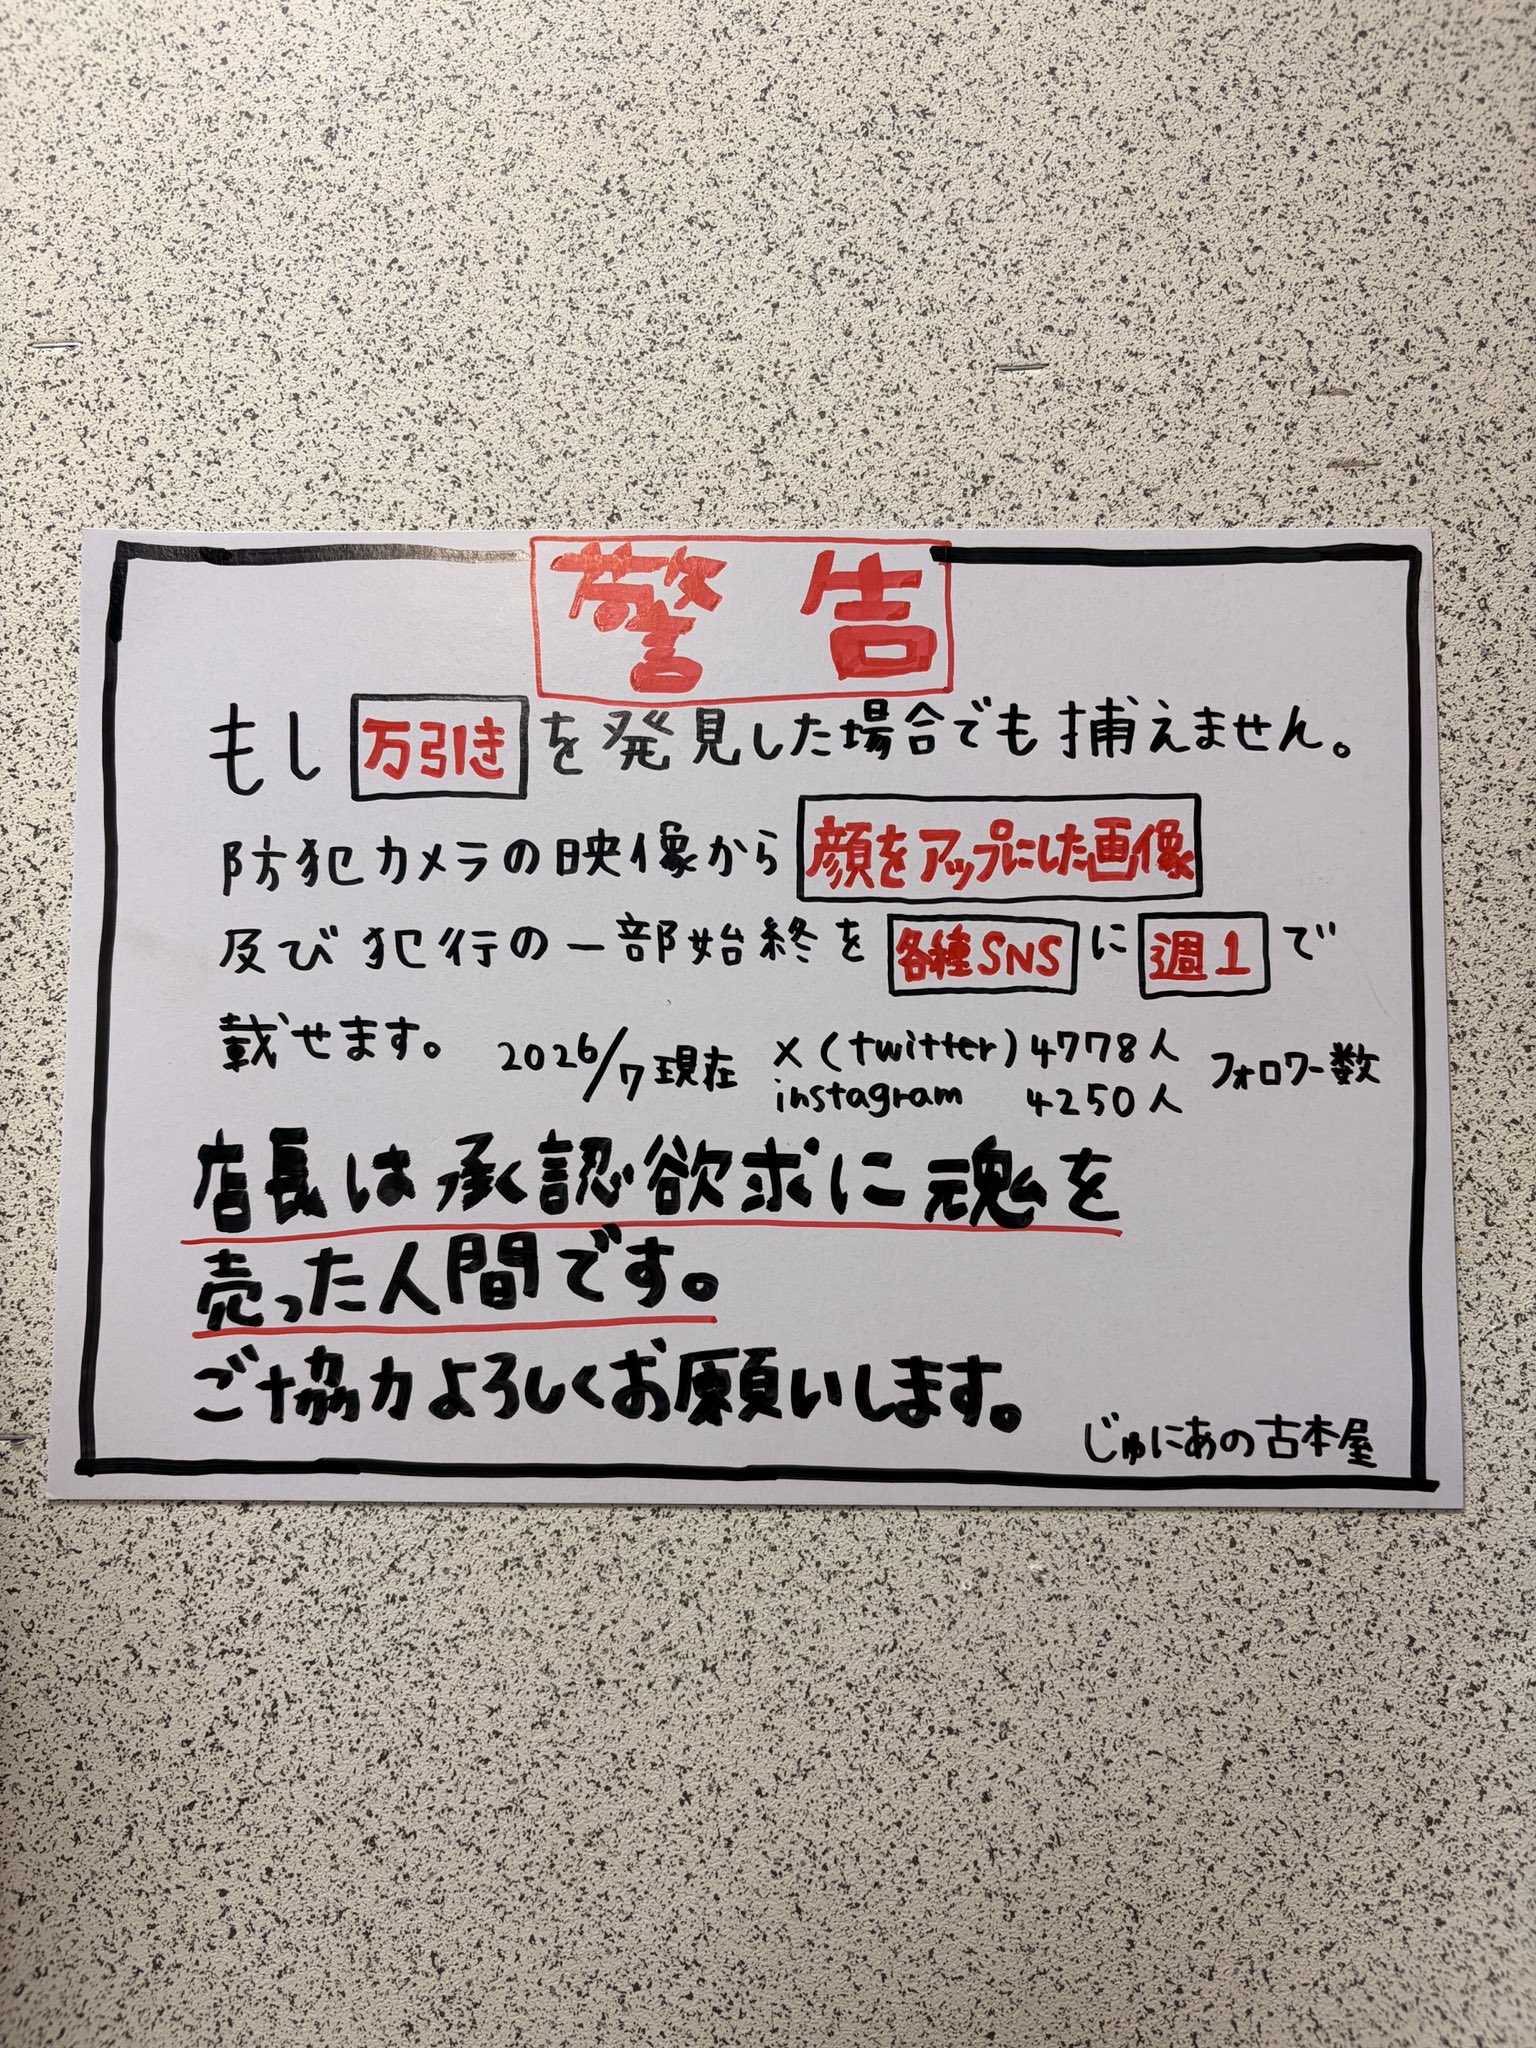 警告
もし万引きを発見した場合でも捕えません。
防犯カメラの映像から顔をアップにした画像
及び犯行の一部始終を各種SNSに週1で
載せます。 2026/7現在 X(twitter)4778人 フォロワー数
instagram 4250人
店長は承認欲求に魂を
売った人間です。
ご協力よろしくお願いします。
じゅにあの古本屋